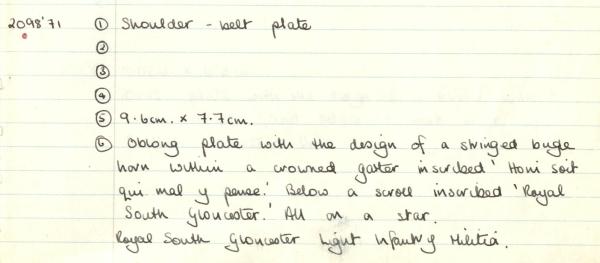 2098'71 ① Shoulder - belt plate
②
③
④
⑤ 9.6cm. x 7.7cm.
⑥ Oblong plate with the design of a stringed bugle
horn within a crowned garter inscribed 'Honi soit
qui mal y pense.' Below a scroll inscribed 'Royal
South Gloucester.' All on a star.
Royal South Gloucester Light Infantry Militia.